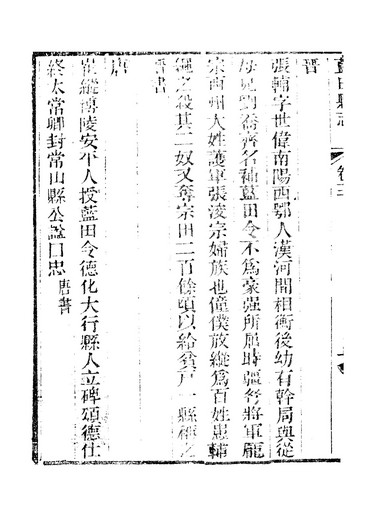 藍田縣志 卷三
晉
張輔字世偉南陽西鄂人漢河間相衡後幼有幹局與從
母兄劉喬齊名補藍田令不爲豪强所屈時彊弩將軍龐
宗西州大姓護軍張浚宗婦族也僮僕放縱爲百姓患輔
繩之殺其二奴又奪宗田二百餘頃以給貧戶一縣稱之
晉書
唐
崔縱博陵安平人授藍田令德化大行縣人立碑頌德仕
終太常卿封常山縣公謚曰忠唐書